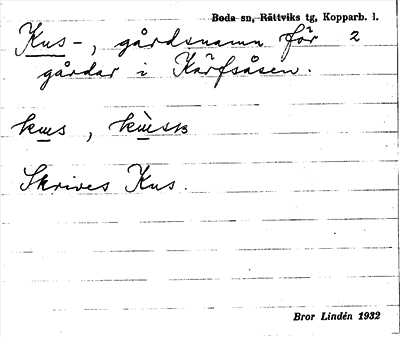 Boda sn, Rättviks tg, Kopparb. l.
Kus-, gårdsnamn för 2
gårdar i Kärfsåsen.
kus,
Skrives Kus.
Bror Lindén 1932